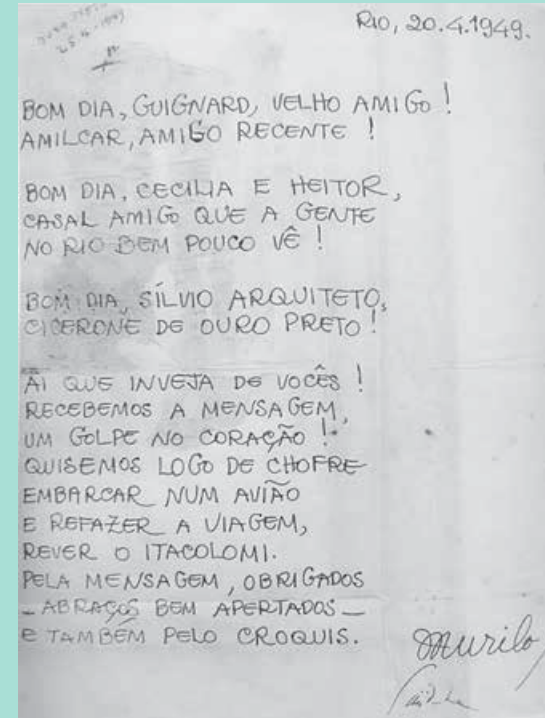 25.4.1949
Rio, 20.4.1949.
BOM DIA, GUIGNARD, VELHO AMIGO!
AMILCAR, AMIGO RECENTE!
BOM DIA, CECILIA E HEITOR,
CASAL AMIGO QUE A GENTE
NO RIO BEM POUCO VÊ!
BOM DIA, SÍLVIO ARQUITETO,
CICERONE DE OURO PRETO!
AI QUE INVEJA DE VOCÊS!
RECEBEMOS A MENSAGEM,
UM GOLPE NO CORAÇÃO!
QUISEMOS LOGO DE CHOFRE
EMBARCAR NUM AVIÃO
E REFAZER A VIAGEM,
REVER O ITACOLOMI.
PELA MENSAGEM, OBRIGADOS
_ ABRAÇOS BEM APERTADOS _
E TAMBÉM PELO CROQUIS.
Murilo